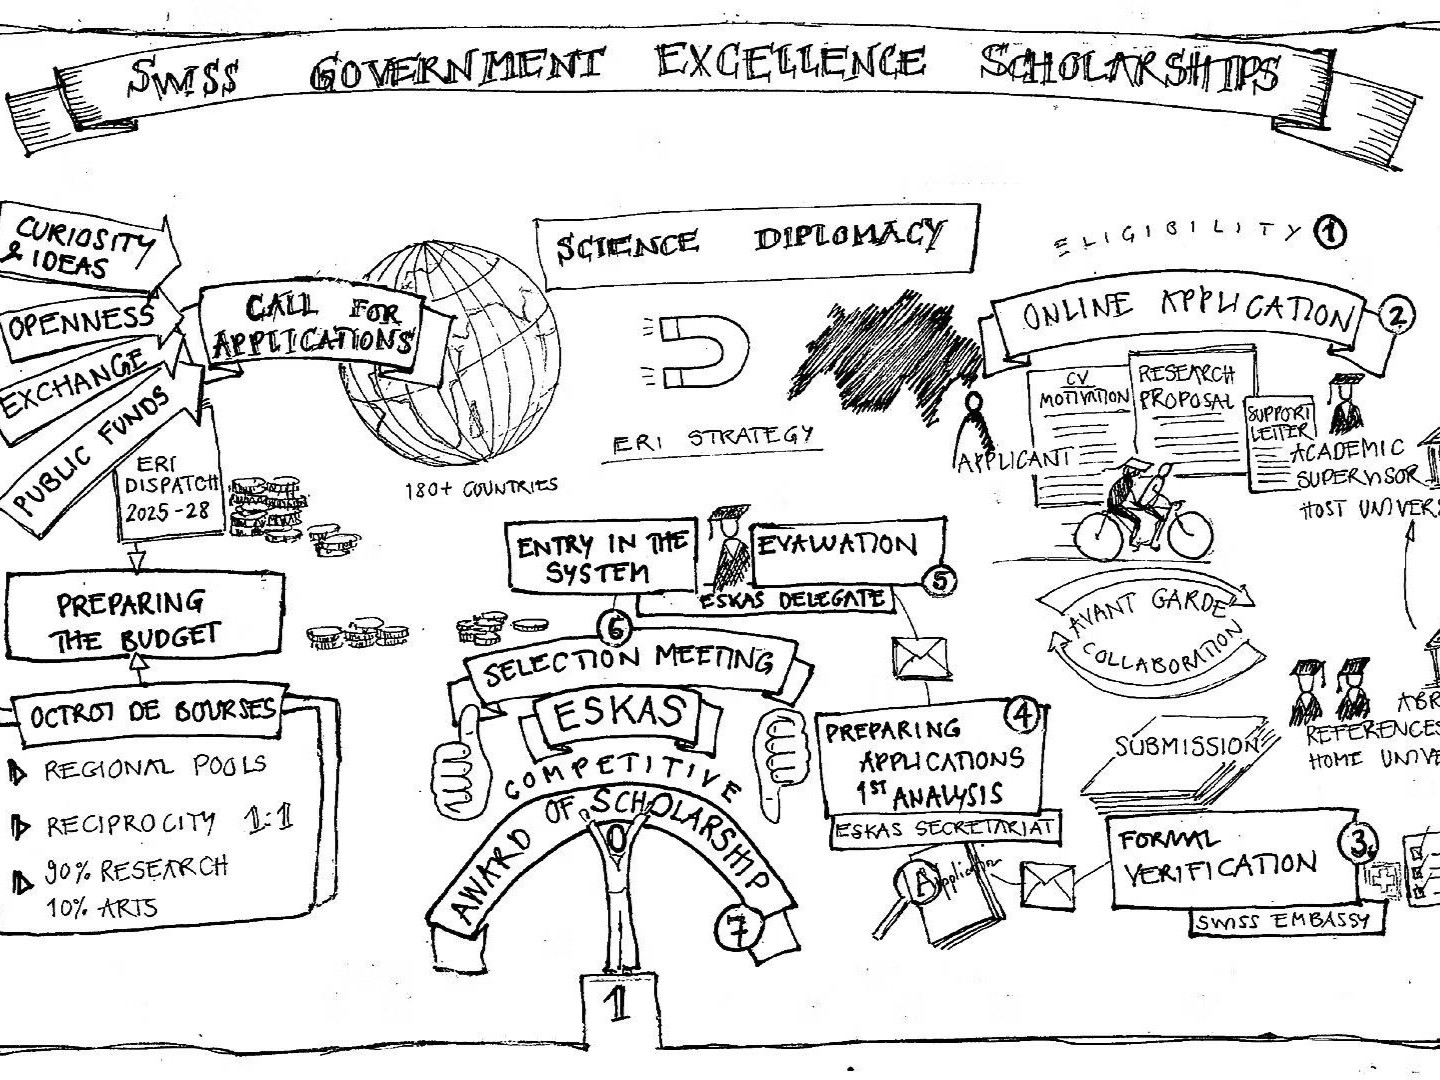 SWISS GOVERNMENT EXCELLENCE SCHOLARSHIPS
CURIOSITY
& IDEAS
OPENNESS
EXCHANGE
PUBLIC FUNDS
CALL FOR
APPLICATIONS
180+ COUNTRIES
SCIENCE DIPLOMACY
ERI STRATEGY
ERI
DISPATCH
2025-28
PREPARING
THE BUDGET
OCTROI DE BOURSES
REGIONAL POOLS
RECIPROCITY 1:1
90% RESEARCH
10% ARTS
ELIGIBILITY 1
ONLINE APPLICATION 2
CV
MOTIVATION
RESEARCH
PROPOSAL
SUPPORT
LETTER
APPLICANT
ACADEMIC
SUPERVISOR
HOST UNIVER
AVANT GARDE
COLLABORATION
REFERENCES
HOME UNIVE
SUBMISSION
FORMAL
VERIFICATION
3.
SWISS EMBASSY
Application
PREPARING
APPLICATIONS
1ST ANALYSIS
4
ESKAS SECRETARIAT
EVALUATION
5
ESKAS DELEGATE
ENTRY IN THE
SYSTEM
6
SELECTION MEETING
ESKAS
COMPETITIVE
AWARD OF SCHOLARSHIP
7
1